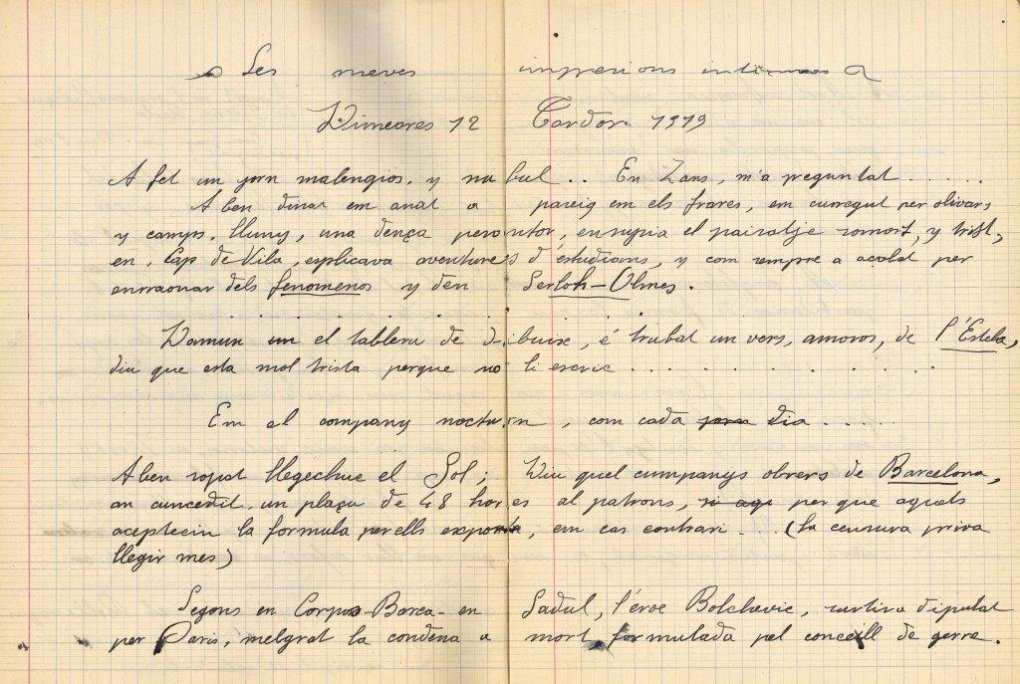 Les meves impresions intimas
Dimecres 12 Tardor 1919
A fet un jorn malengios, y nubul .. En Zans, m'a preguntat ......
Aben dinar em anat a paseig em els frares, em curregut per olivars
y camps, lluny, una dença pero  , ensupia el paisatje somort, y trist,
en, Cap de Vila, explicava aventures d'estudians, y com sempre a acabat per
enrraonar dels fenomenos y den Serloh-Olmes.
Damun un el tableru de dibuixe, é trubat un vers, amoros, de l'Esteba,
diu que esta mol trista perque no li escric ..........
Em el company nocturn, com cada jorn dia .....
Aben sopat llegechue el Sol; Diu quel cumpanys obrers de Barcelona,
an cuncedit, un plaçu de 48 hores al patrons, si aqi per que aquets
aceptecin la formula per ells exposta, em cas contrari ... (la censura priva
llegir mes)
Segons en Corpus Barca - en Sadul, l'éroe Bolchevic, surtira diputat
per Paris, melgrat la condena a mort formulada pel concell de gerra.